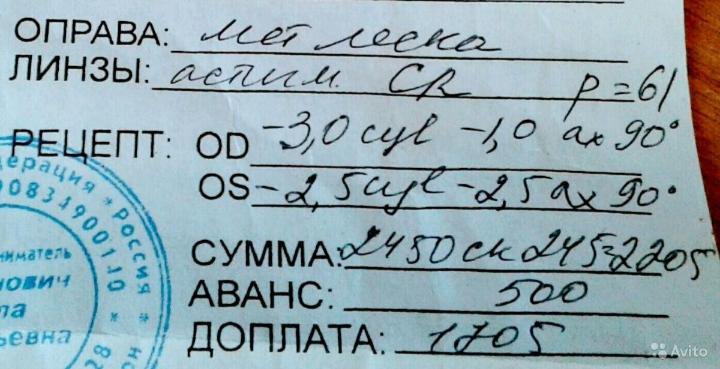 ОПРАВА: мет леска
ЛИНЗЫ: астигм. CR p=61
РЕЦЕПТ: OD -3,0 cyl -1,0 ax 90°
OS -2,5 cyl -2,5 ax 90°
СУММА: 2450 ск 245=2205
АВАНС: 500
ДОПЛАТА: 1705
дерация * Россия *
00834900110 *
ниматель
нович
ла
ьевна
28
Avito